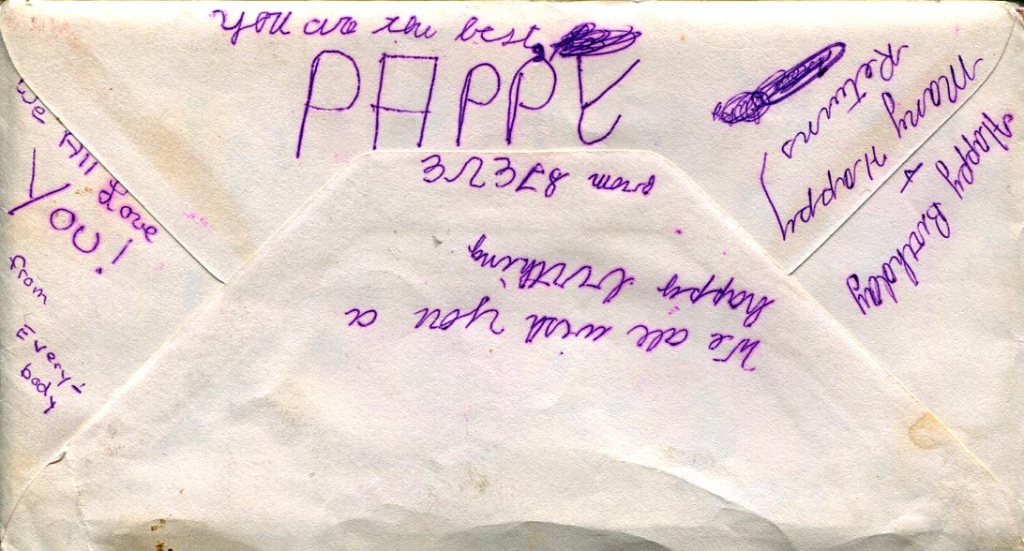 You are the best,
PAPPY
from STEVE
We all wish you a
happy
We All Love
You!
from
Every-
body
Happy Birthday
+
Many Happy
Returns!